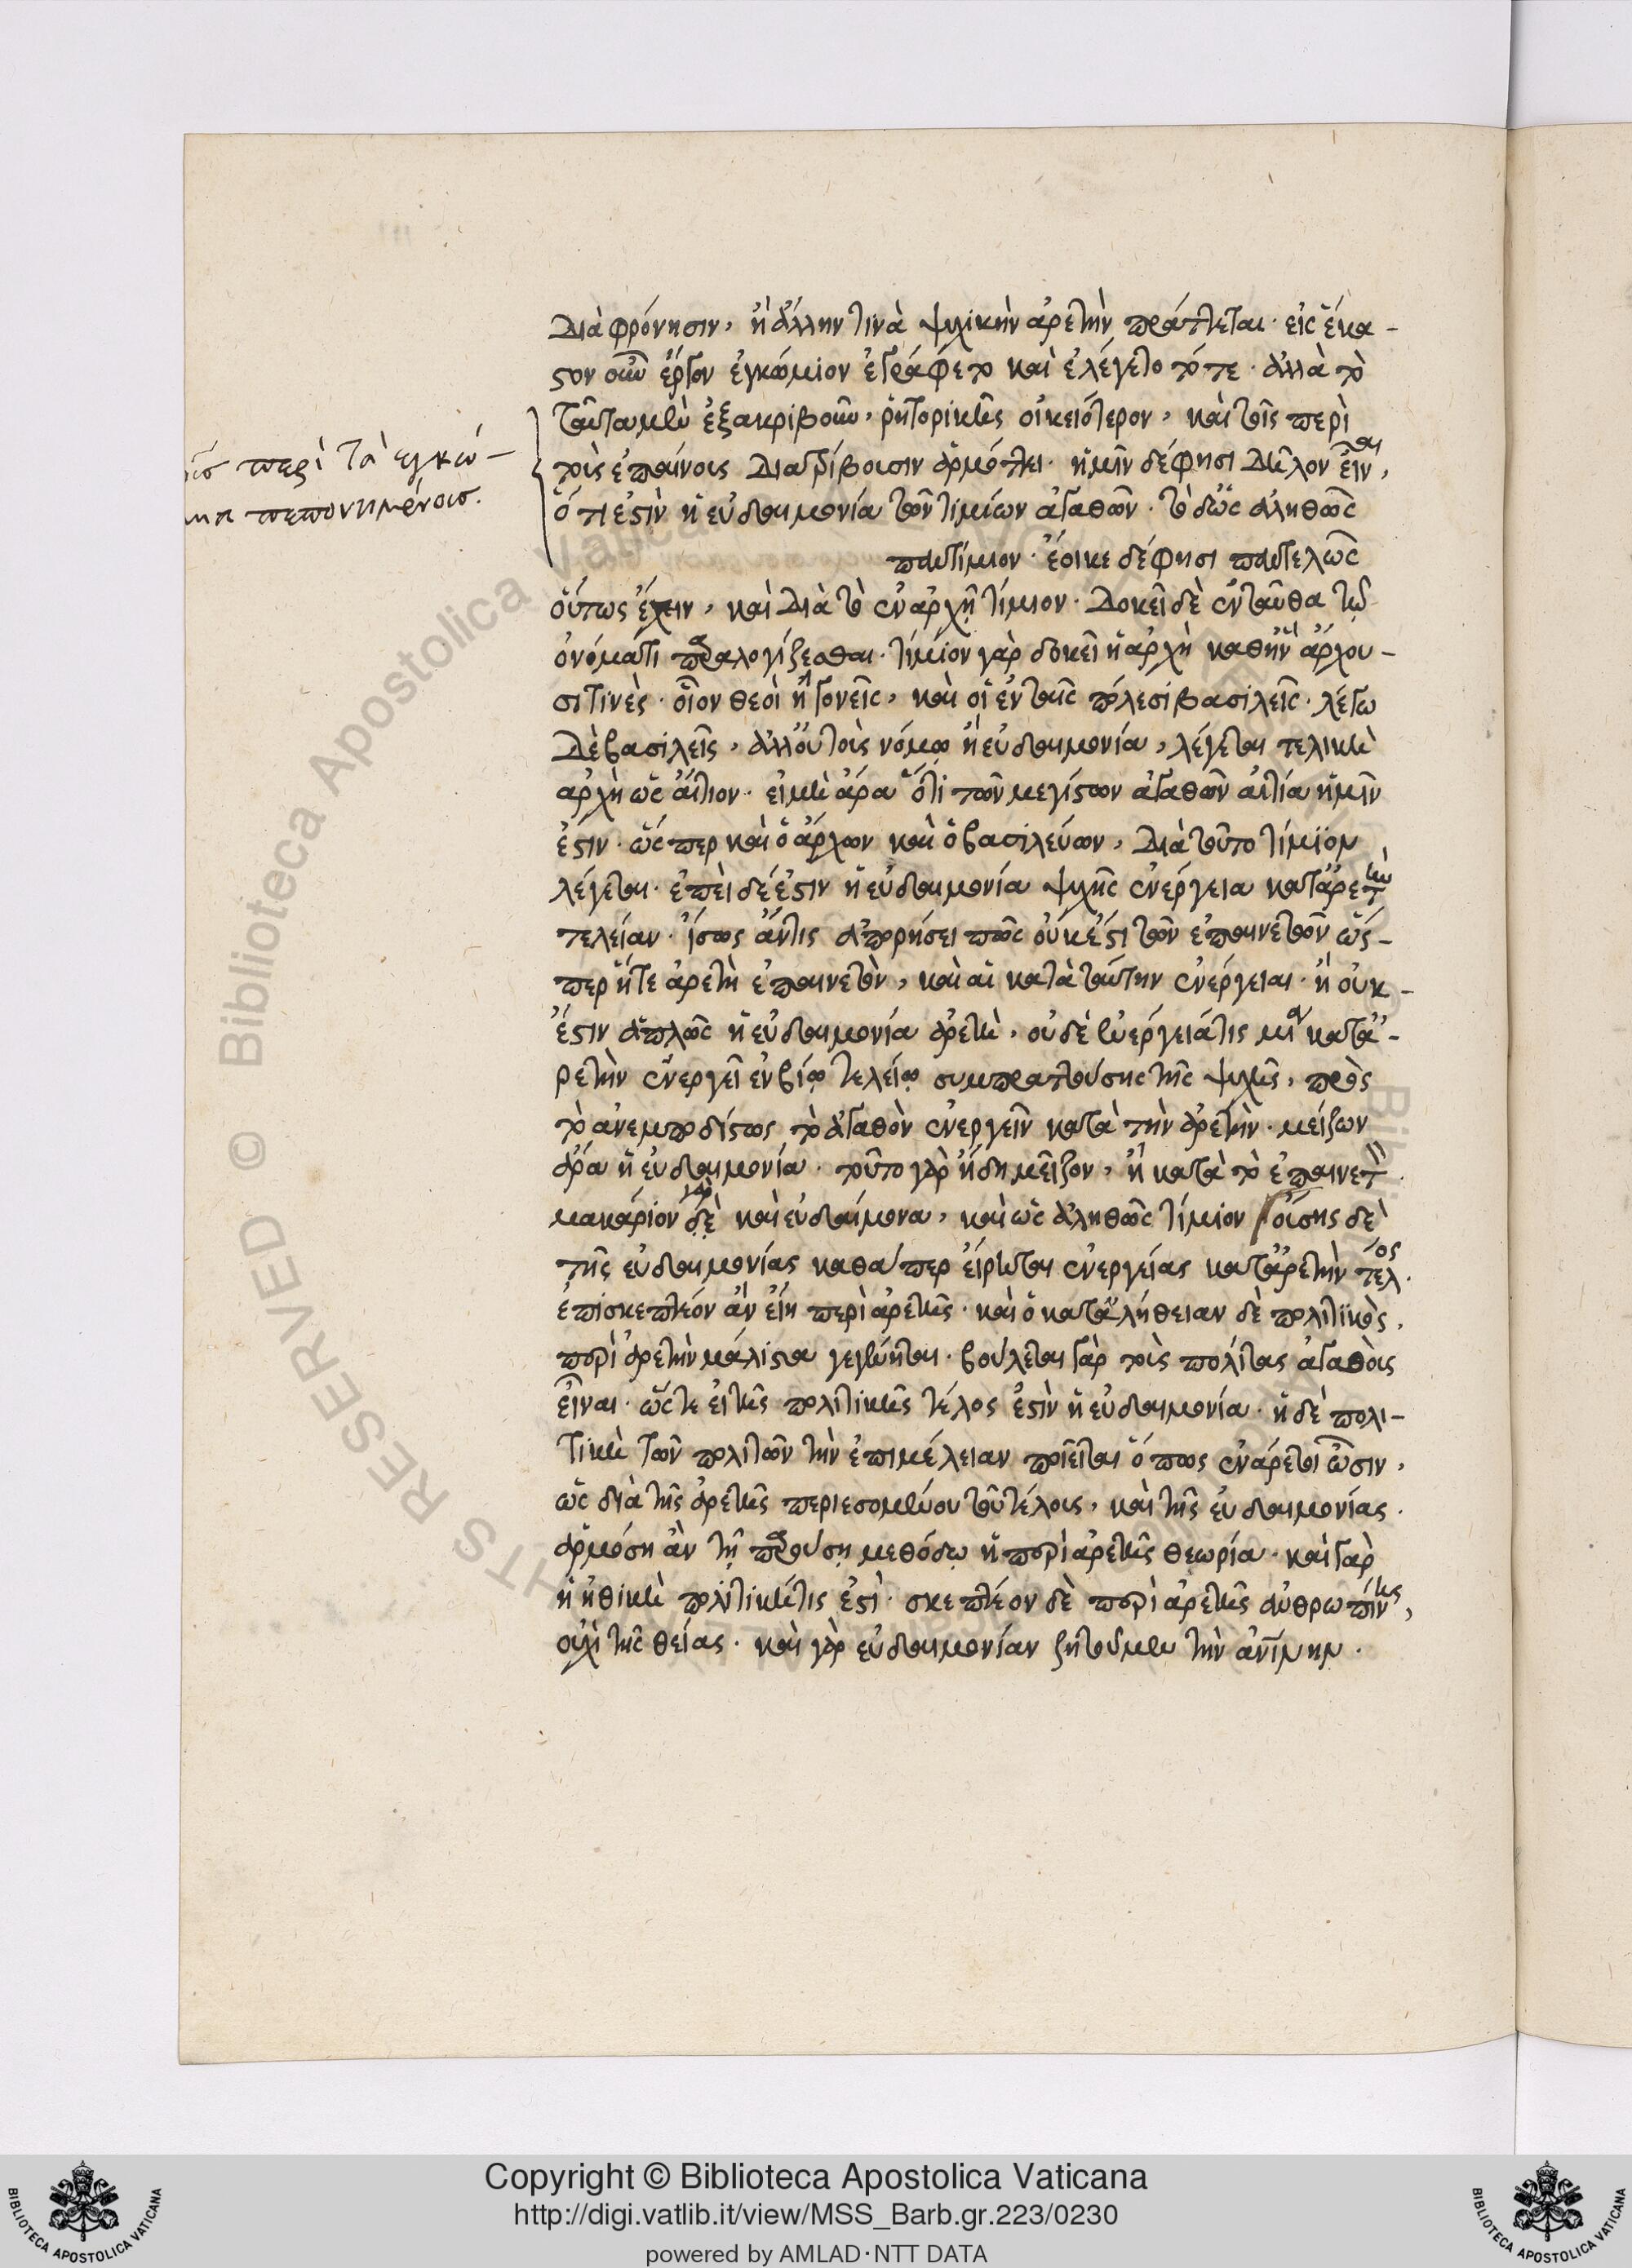 διὰ φρόνησιν, ἢ ἄλλην τινὰ ψυχικὴν ἀρετὴν πράττεται· εἰς ἕκα-
στον οὖν ἔργον ἐγκώμιον ἐγράφετο καὶ ἐλέγετο τότε· ἀλλὰ τὸ
ταῦτα μὲν ἐξακριβοῦν, ῥητορικῆς οἰκειότερον, καὶ τοῖς περὶ
τοὺς ἐπαίνους διατρίβουσιν ἁρμόττει· ἡμῖν δέ φησι δῆλον εἶναι,
ὅτι ἐστὶν ἡ εὐδαιμονία τῶν τιμίων ἀγαθῶν· τὸ δ' ὡς ἀληθῶς
παντίμιον· ἔοικε δέ φησι παντελῶς
οὕτως ἔχειν, καὶ διὰ τὸ ἐν ἀρχῇ τίμιον· δοκεῖ δὲ ἐνταῦθα τῷ
ὀνόματι παραλογίζεσθαι· τίμιον γὰρ δοκεῖ ἡ ἀρχὴ καθ' ἣν ἄρχου-
σι τινὲς· οἷον θεοὶ ἢ γονεῖς, καὶ οἱ ἐν ταῖς πόλεσι βασιλεῖς· λέγω
δὲ βασιλεῖς, ἀλλ' οὐ τοῖς νόμῳ ἡ εὐδαιμονία, λέγεται τελικὴ
ἀρχὴ ὡς αἴτιον· εἰ μὴ ἄρα ὅτι τῶν μεγίστων ἀγαθῶν αἰτία ἡμῖν
ἐστιν· ὥσπερ καὶ ὁ ἄρχων καὶ ὁ βασιλεύων, διὰ τοῦτο τίμιον
λέγεται· ἐπεὶ δέ ἐστιν ἡ εὐδαιμονία ψυχῆς ἐνέργεια κατ' ἀρετὴν
τελείαν· ἴσως ἄν τις ἀπορήσει πῶς οὐκ ἔστι τῶν ἐπαινετῶν ὥς-
περ ἥ τε ἀρετὴ ἐπαινετὸν, καὶ αἱ κατὰ ταύτην ἐνέργειαι· ἢ οὐκ-
ἔστιν ἁπλῶς ἡ εὐδαιμονία ἀρετὴ, οὐδὲ ἐνέργειά τις μία κατ' ἀ-
ρετὴν ἐνεργεῖ ἐν βίῳ τελείῳ συμπραττούσης τῆς ψυχῆς, πρὸς
τὸ ἀνεμποδίστως τὸ ἀγαθὸν ἐνεργεῖν κατὰ τὴν ἀρετὴν· μείζων
ἄρα ἡ εὐδαιμονία· τοῦτο γὰρ ἤδη μεῖζον, ἢ κατὰ τὸ ἐπαινετὸν·
μακάριον γὰρ δὲ καὶ εὐδαίμονα, καὶ ὡς ἀληθῶς τίμιον / οὔσης δὲ
τῆς εὐδαιμονίας καθάπερ εἴρηται ἐνεργείας κατ' ἀρετὴν τέλος·
ἐπισκεπτέον ἂν εἴη περὶ ἀρετῆς· καὶ ὁ κατ' ἀλήθειαν δὲ πολιτικὸς,
περὶ ἀρετὴν μάλιστα γεγένηται· βούλεται γὰρ τοὺς πολίτας ἀγαθοὺς
εἶναι· ὥστε εἰ τῆς πολιτικῆς τέλος ἐστὶν ἡ εὐδαιμονία· ἡ δὲ πολι-
τικὴ τῶν πολιτῶν τὴν ἐπιμέλειαν ποιεῖται ὅπως ἐνάρετοι ὦσιν,
ὡς διὰ τῆς ἀρετῆς περιεσομένου τοῦ τέλους, καὶ τῆς εὐδαιμονίας·
ἁρμόσῃ ἂν τῇ παρούσῃ μεθόδῳ ἡ περὶ ἀρετῆς θεωρία· καὶ γὰρ
ἡ ἠθικὴ πολιτική τις ἐστὶ· σκεπτέον δὲ περὶ ἀρετῆς ἀνθρωπίνης,
οὐχὶ τῆς θείας· καὶ γὰρ εὐδαιμονίαν ζητοῦμεν τὴν ἀνθρωπίνην·
οῖς περὶ τὰ ἐγκώ-
μια πεπονημένοις.
Copyright © Biblioteca Apostolica Vaticana
http://digi.vatlib.it/view/MSS_Barb.gr.223/0230
powered by AMLAD·NTT DATA